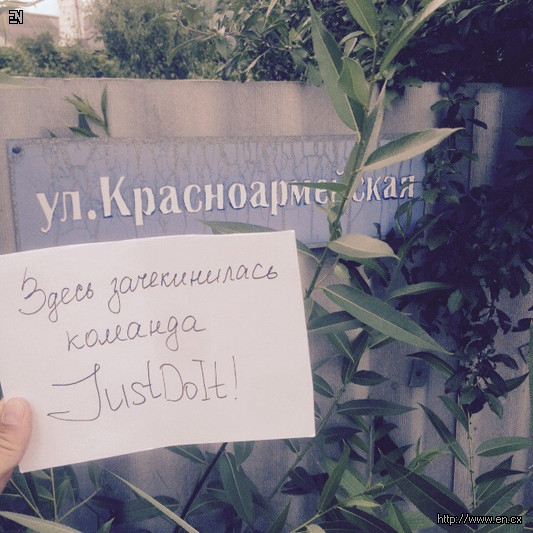 EN
ул.Красноармейская
Здесь зачекинилась
команда
JustDoIt!
http://www.en.cx